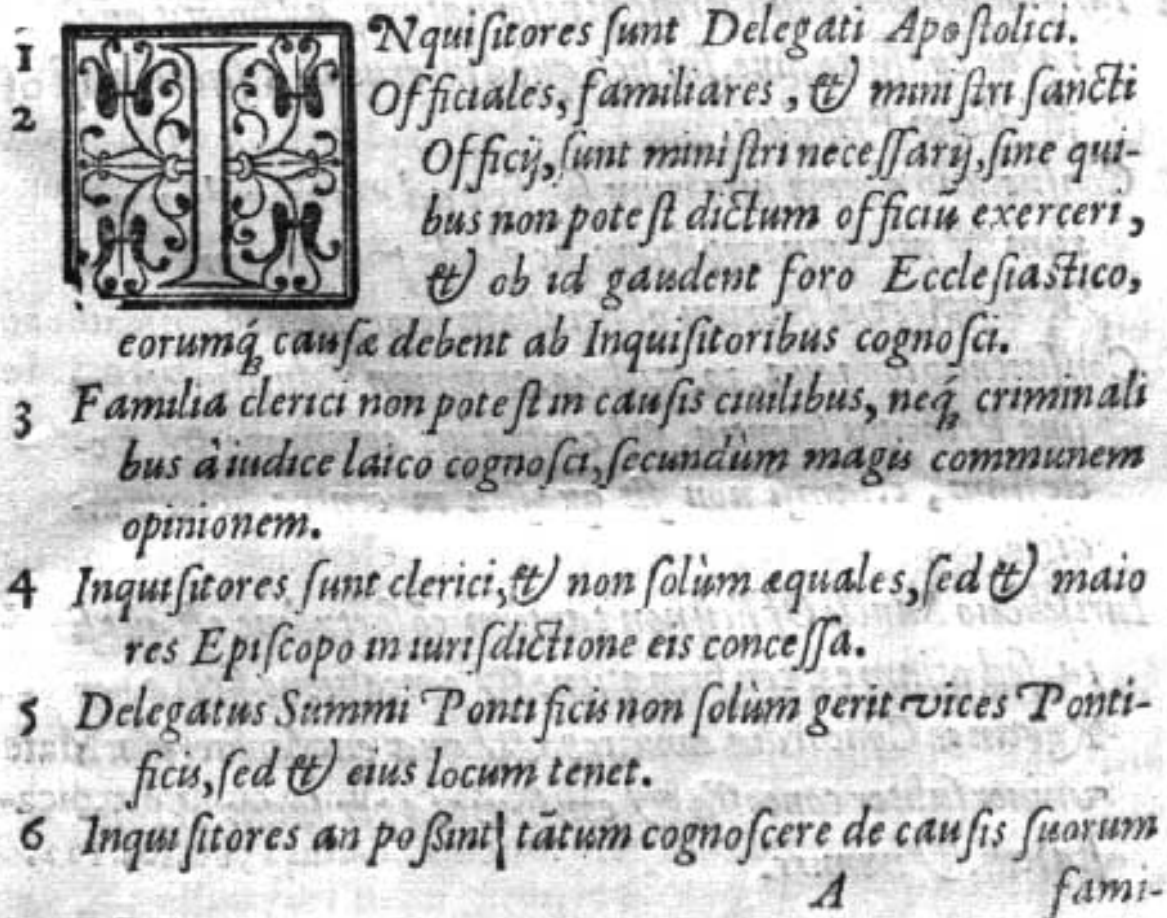 1 INquiſitores ſunt Delegati Apoſtolici.
2 Officiales, familiares, & miniſtri ſancti
Officij, ſunt miniſtri neceſſarij, ſine qui-
bus non poteſt dictum officiū exerceri,
& ob id gaudent foro Eccleſiaſtico,
eorumq́ꝫ cauſæ debent ab Inquiſitoribus cognoſci.
3 Familia clerici non poteſt in cauſis ciuilibus, neq́ꝫ criminali
bus à iudice laico cognoſci, ſecundùm magis communem
opinionem.
4 Inquiſitores ſunt clerici, & non ſolùm æquales, ſed & maio
res Epiſcopo in iuriſdictione eis conceſſa.
5 Delegatus Summi Pontificis non ſolùm gerit vices Ponti-
ficis, ſed & eius locum tenet.
6 Inquiſitores an poßint| tātum cognoſcere de cauſis ſuorum
A fami-